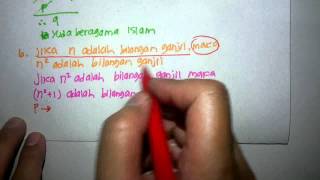 ∴ q
Yuda beragama Islam
6. Jika n adalah bilangan ganjil, maka
n² adalah bilangan ganjil
Jika n² adalah bilangan ganjil maka
(n²+1) adalah bilangan
P →